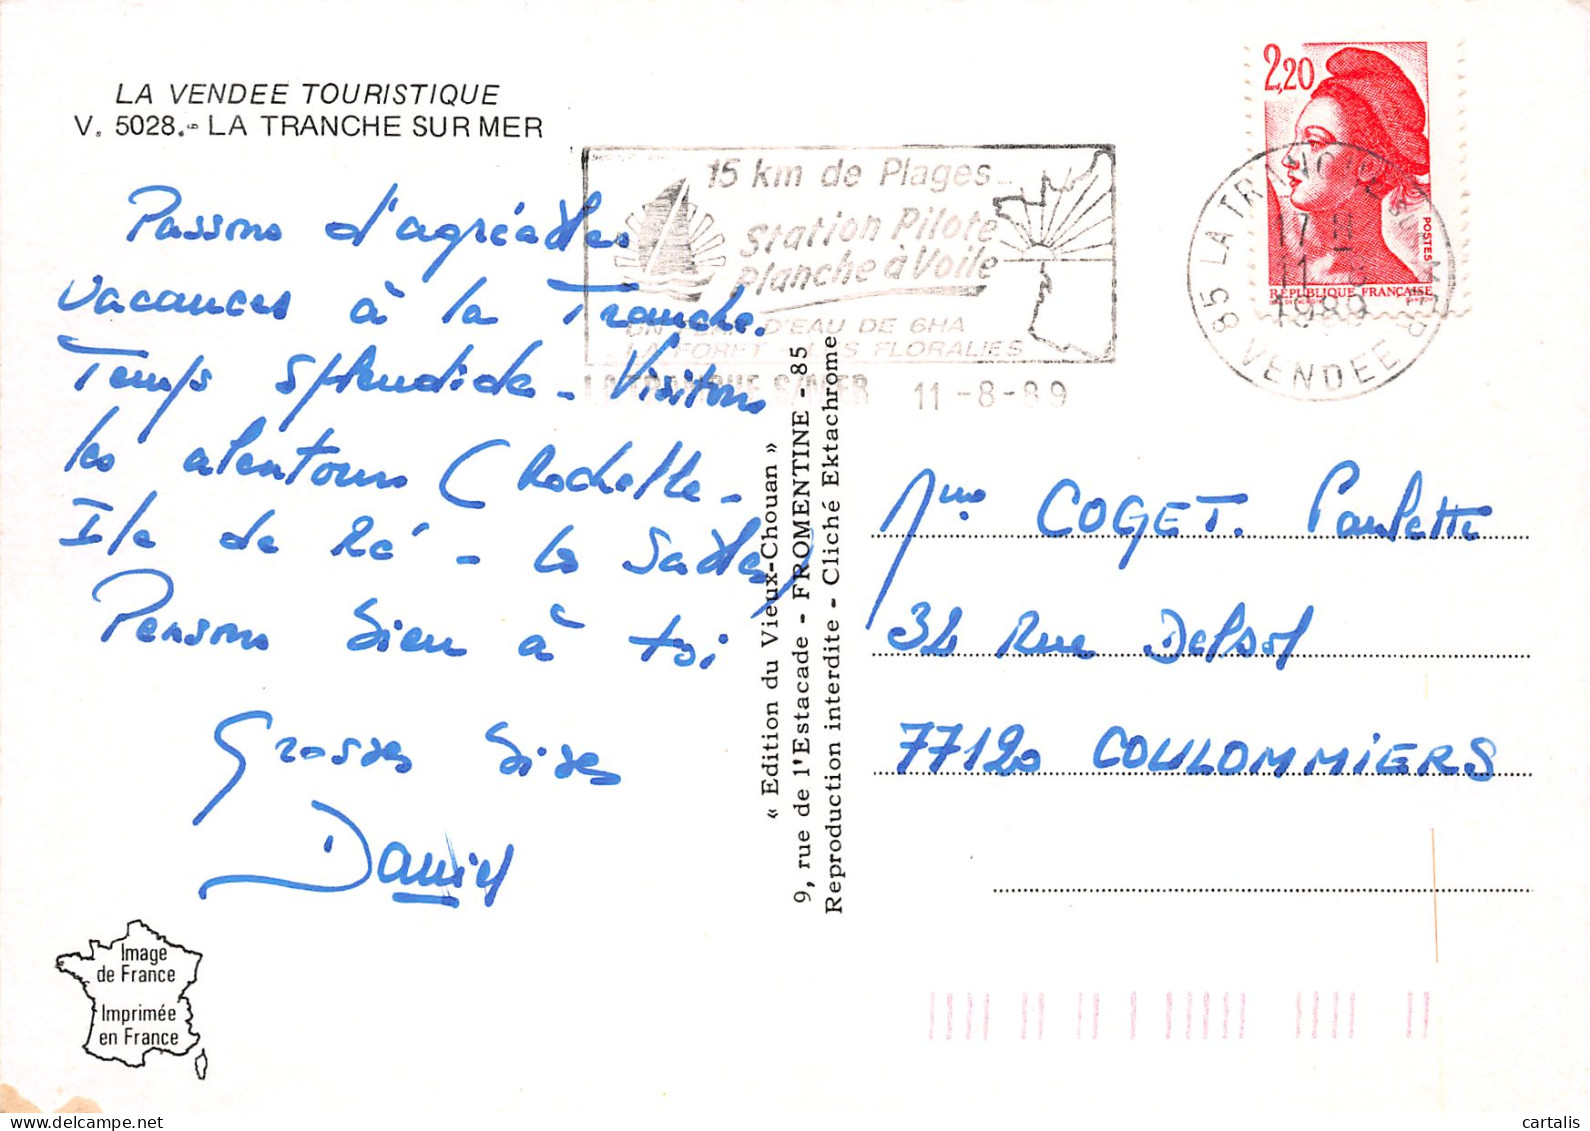 LA VENDEE TOURISTIQUE
V. 5028.- LA TRANCHE SUR MER
Passons d'agréables
vacances à la Tranche.
Temps splendide - Visitons
les alentours (Rochelle -
Ile de Ré - les Sables)
Pensons bien à toi
Grosses bises
Daniel
Image
de France
Imprimée
en France
« Edition du Vieux-Chouan »
9, rue de l'Estacade - FROMENTINE - 85
Reproduction interdite - Cliché Ektachrome
15 km de Plages
Station Pilote
Planche à Voile
UN PLAN D'EAU DE 6HA
LA FORET - LES FLORALIES
LA TRANCHE S/MER 11-8-89
2,20
POSTES
REPUBLIQUE FRANÇAISE
85 LA TRANCHE SUR MER
17 H
11 8
1989
VENDEE
Mme COGET. Paulette
32 Rue Delsol
77120 COULOMMIERS
cartalis
delcampe.net